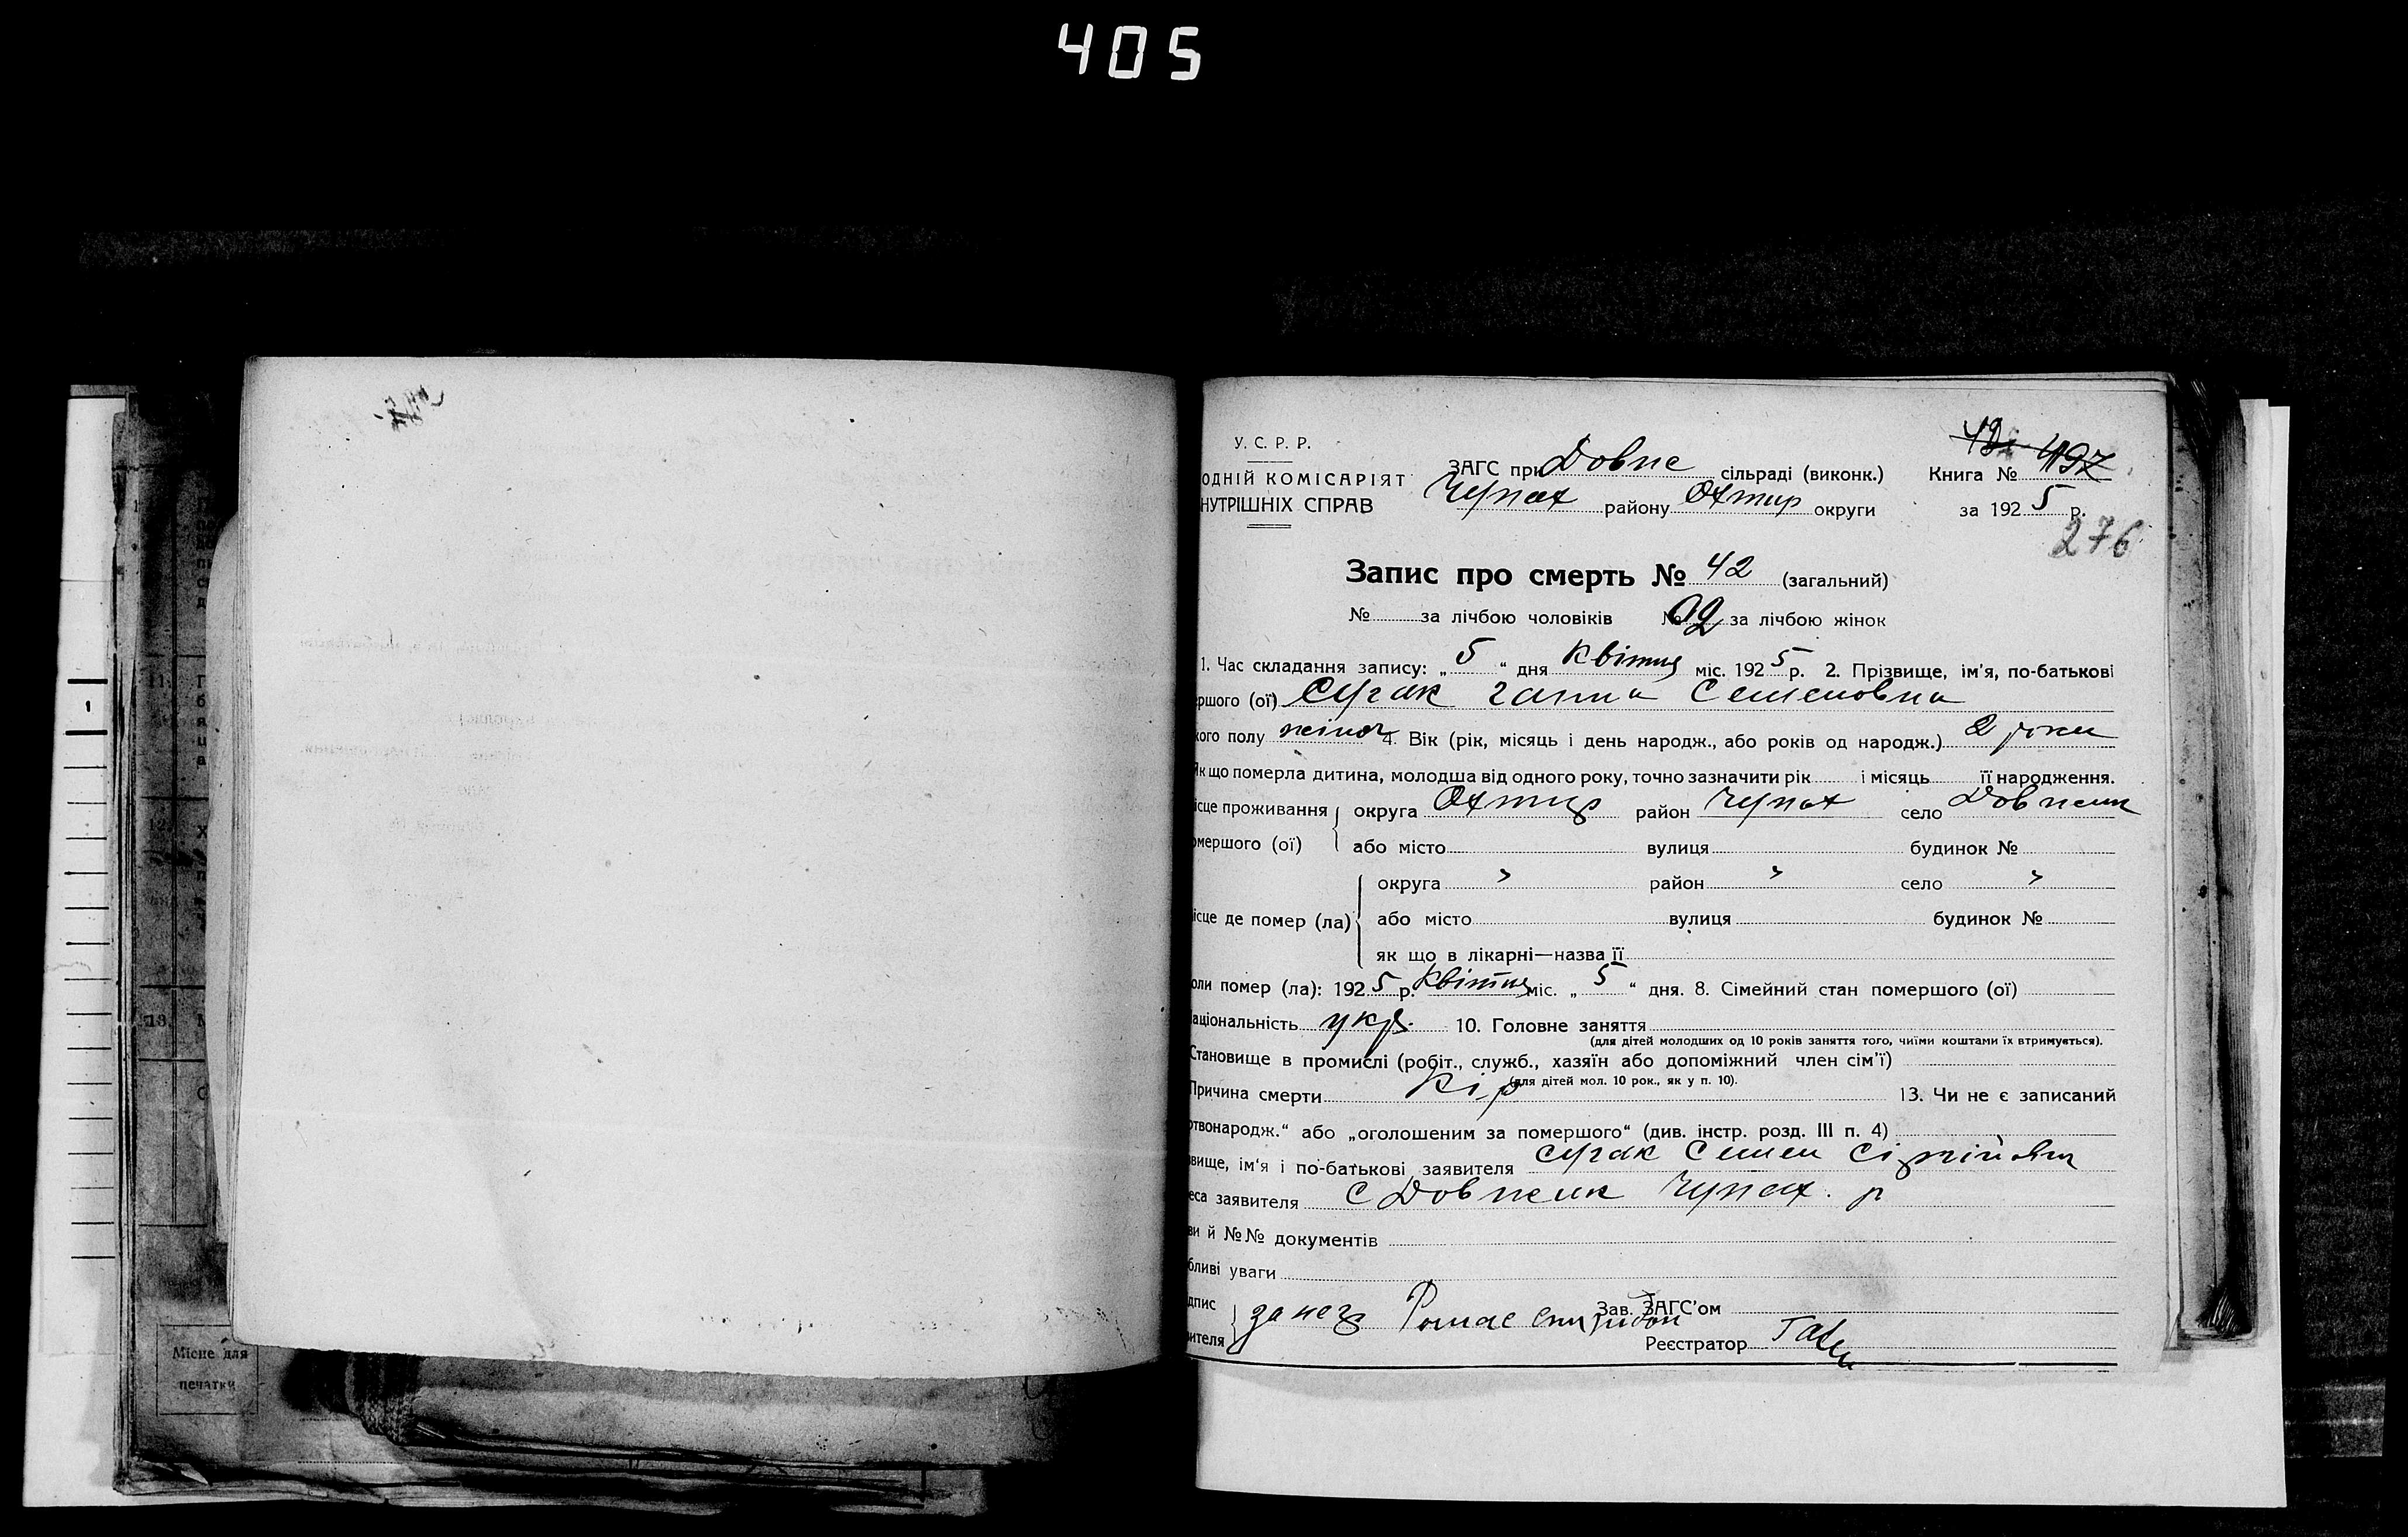 405
У. С. Р. Р.
ОДНІЙ КОМІСАРІЯТ
НУТРІШНІХ СПРАВ
ЗАГС при Довже сільраді (виконк.)
Чупах району Охтир округи
Книга № 497
за 1925 р.
276
Запис про смерть № 42 (загальний)
№ за лічбою чоловіків № за лічбою жінок
1. Час складання запису: „5“ дня Квітня міс. 1925 р. 2. Прізвище, ім'я, по-батькові
ршого (ої) Ганна Семеновна
кого полу жіноч 4. Вік (рік, місяць і день народж., або років од народж.) 2 роки
Якщо померла дитина, молодша від одного року, точно зазначити рік і місяць її народження.
ісце проживання округа Охтир район Чупах село Довжик
омершого (ої) або місто вулиця будинок №
округа " район " село "
ісце де помер (ла) або місто вулиця будинок №
як що в лікарні—назва її
оли помер (ла): 1925 р. Квітня міс. „5“ дня. 8. Сімейний стан помершого (ої)
аціональність укр. 10. Головне заняття
(для дітей молодших од 10 років заняття того, чиїми коштами їх втримується).
Становище в промислі (робіт., служб., хазяїн або допоміжний член сім'ї)
(для дітей мол. 10 рок., як у п. 10).
Причина смерти Кір 13. Чи не є записаний
ртвонародж.“ або „оголошеним за помершого“ (див. інстр. розд. III п. 4)
звище, ім'я і по-батькові заявителя Семен
еса заявителя с Довжик Чупах. р
ви й №№ документів
бливі уваги
дпис Зав. ЗАГС'ом
ителя за неї Реєстратор
Місце для
печатки